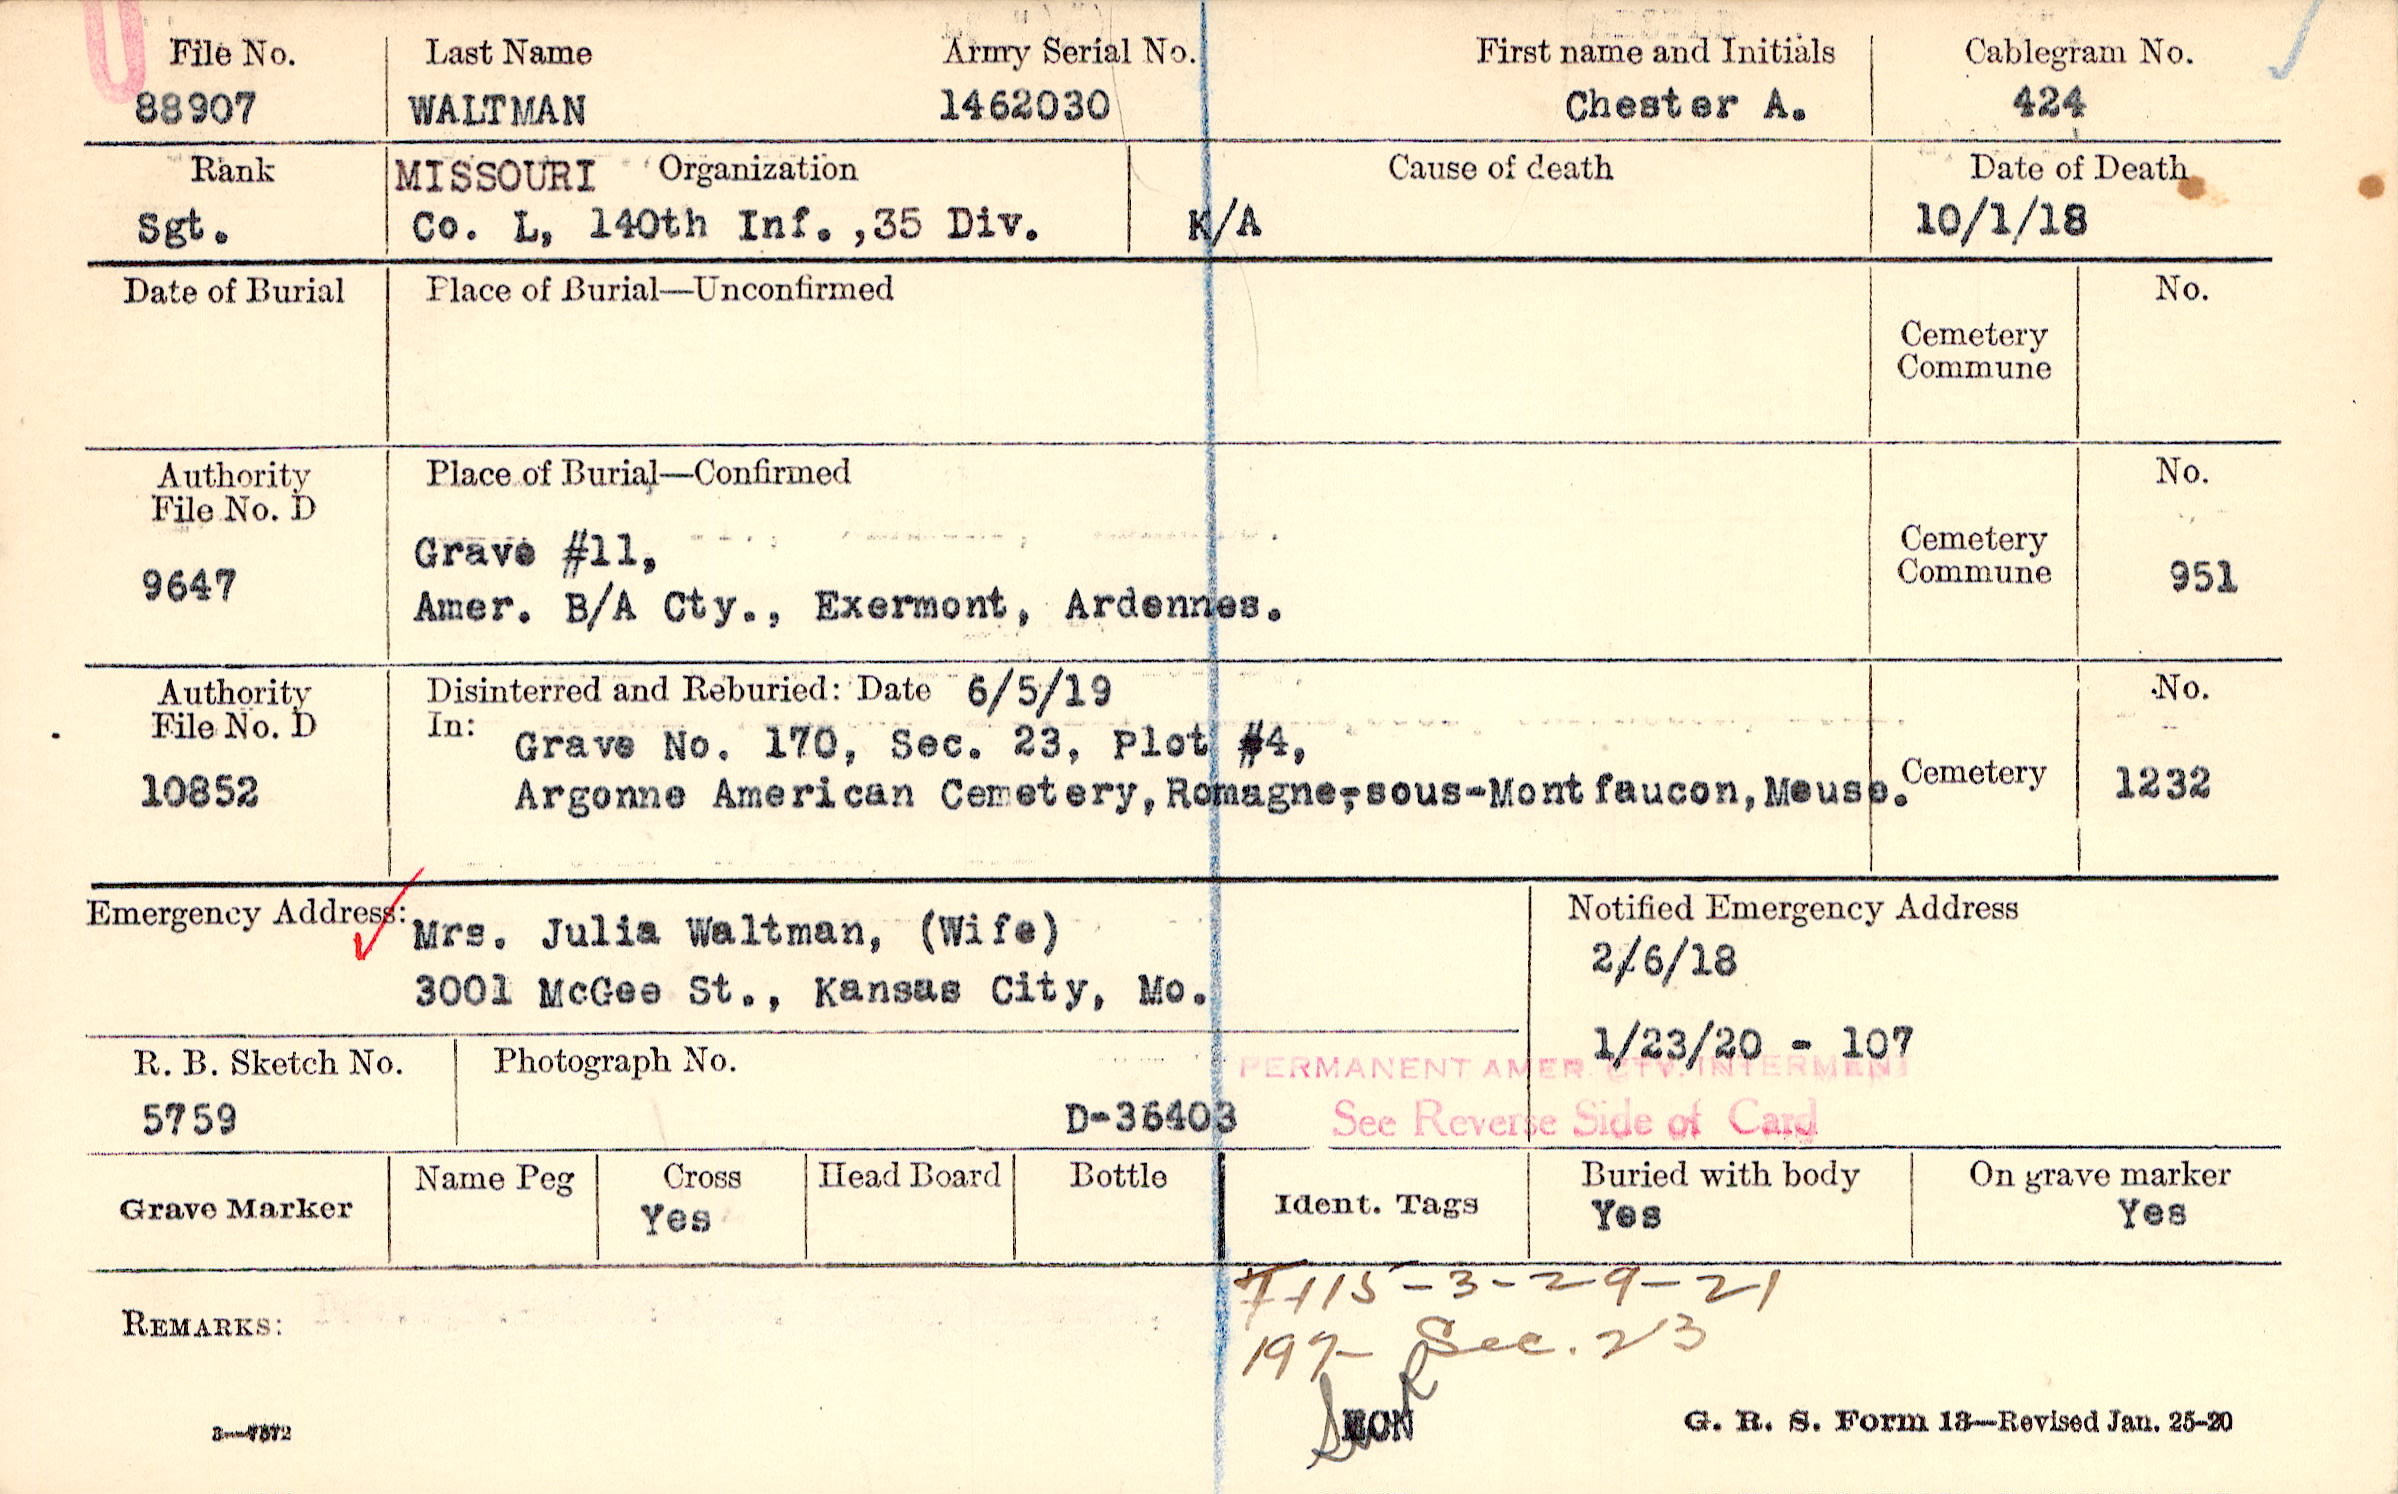 File No. Last Name Army Serial No. First name and Initials Cablegram No.
88907 WALTMAN 1462030 Chester A. 424
Rank MISSOURI Organization Cause of death Date of Death
Sgt. Co. L, 140th Inf. ,35 Div. K/A 10/1/18
Date of Burial Place of Burial—Unconfirmed No.
Cemetery
Commune
Authority Place of Burial—Confirmed No.
File No. D
Grave #11, Cemetery
9647 Commune 951
Amer. B/A Cty., Exermont, Ardennes.
Authority Disinterred and Reburied: Date 6/5/19 No.
File No. D In:
Grave No. 170, Sec. 23, Plot #4,
10852 Argonne American Cemetery, Romagne-sous-Montfaucon, Meuse. Cemetery 1232
Emergency Address: Notified Emergency Address
Mrs. Julia Waltman, (Wife) 2/6/18
3001 McGee St., Kansas City, Mo.
1/23/20 - 107
R. B. Sketch No. Photograph No. PERMANENT AMER. CTY. INTERMENT
5759 D-36403 See Reverse Side of Card
Grave Marker Name Peg Cross Head Board Bottle Ident. Tags Buried with body On grave marker
Yes Yes Yes
115-3-29-21
REMARKS: 197- Sec. 23
3—7372 G. R. S. Form 13—Revised Jan. 25-20